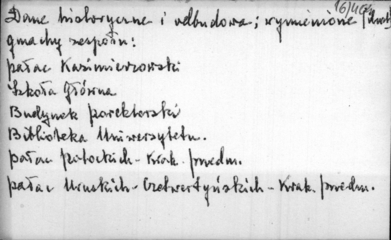 16/46
Dane historyczne i odbudowa; wymienione
gmachy zespołu:
pałac Kazimierzowski
Szkoła Główna
Budynek porektorski
Biblioteka Uniwersytetu.
pałac Potockich - Krak. przedm.
pałac Uruskich - Czetwertyńskich - Krak. przedm.